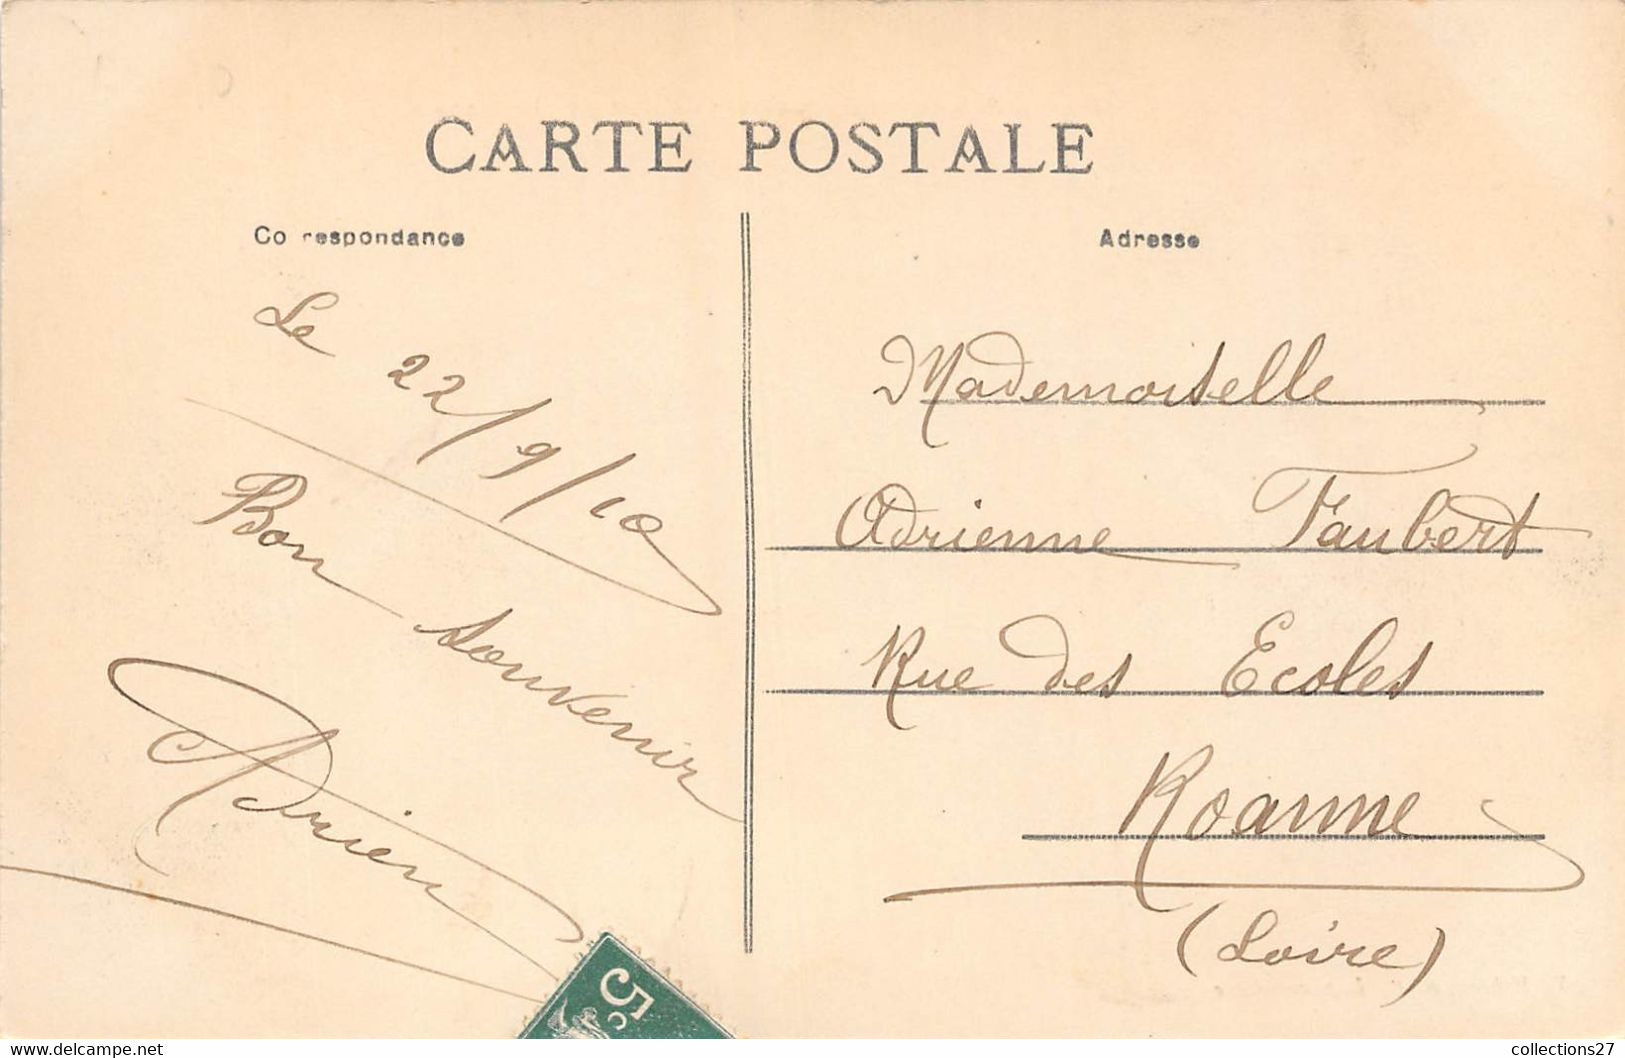 CARTE POSTALE
Co respondance
Adresse
Le 22/9/10
Bon souvenir
Adrien
Mademoiselle
Adrienne Faubert
Rue des Ecoles
Roanne
(Loire)
5c
collections27